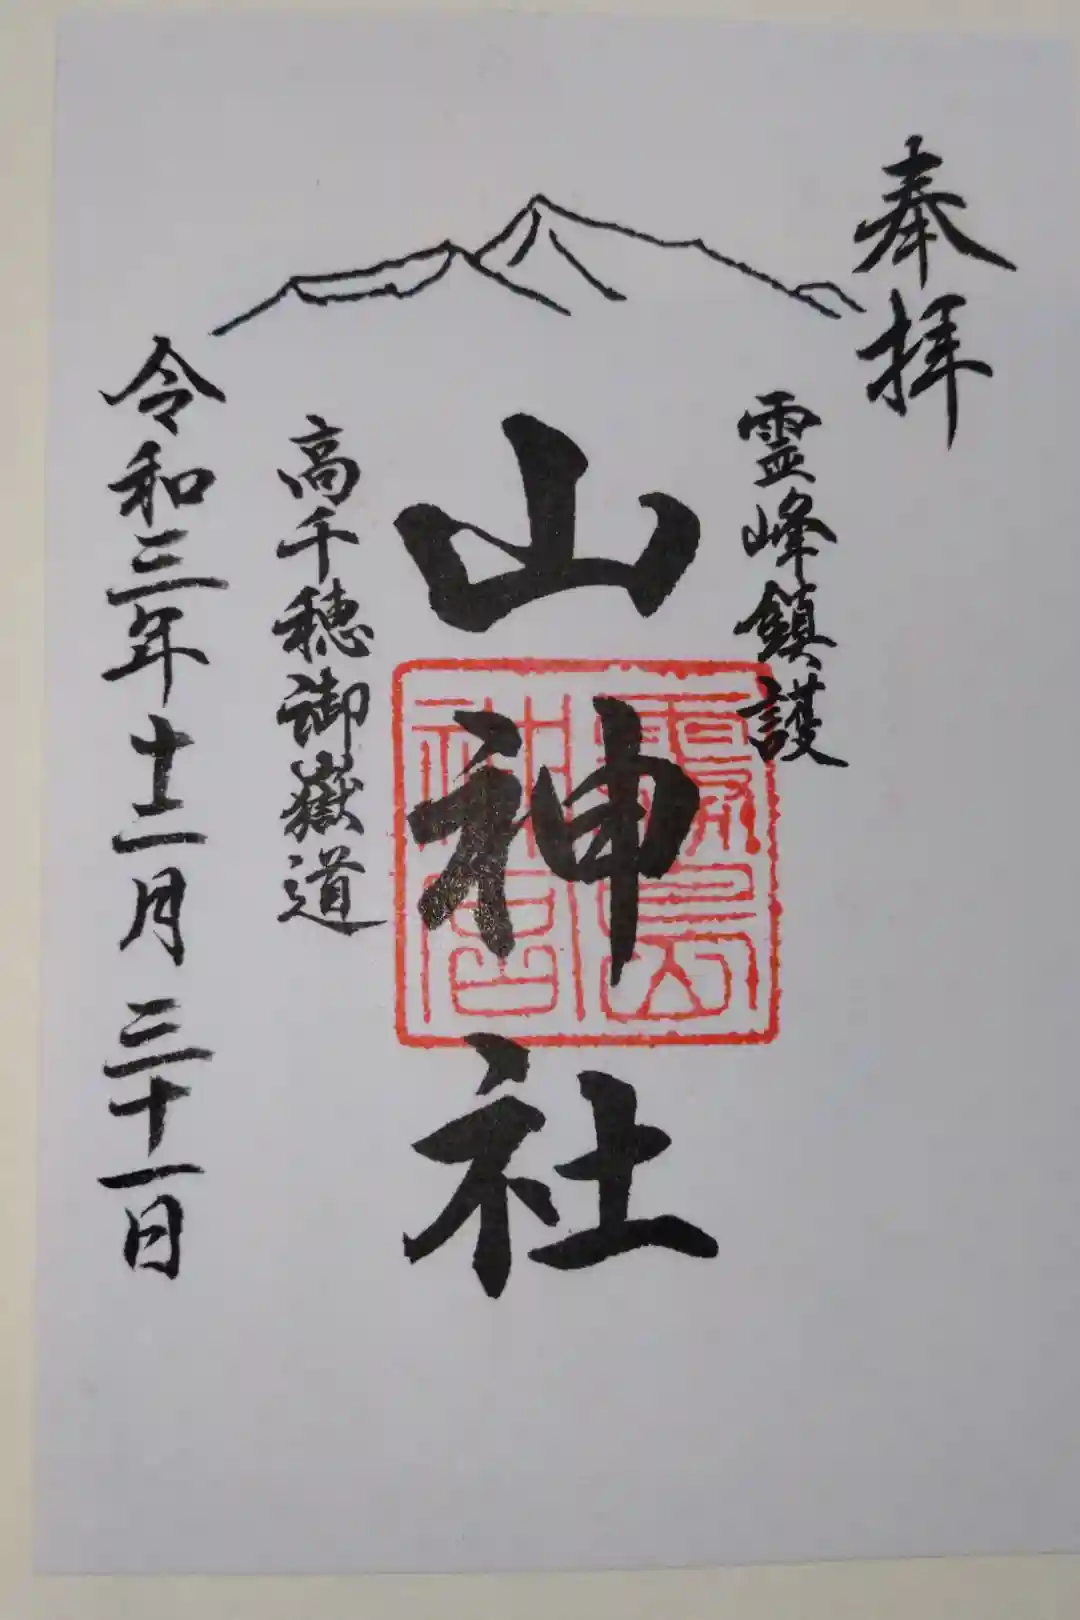 奉拝
霊峰鎮護
山神社
霧島
神宮
高千穂御嶽道
令和三年十二月三十一日